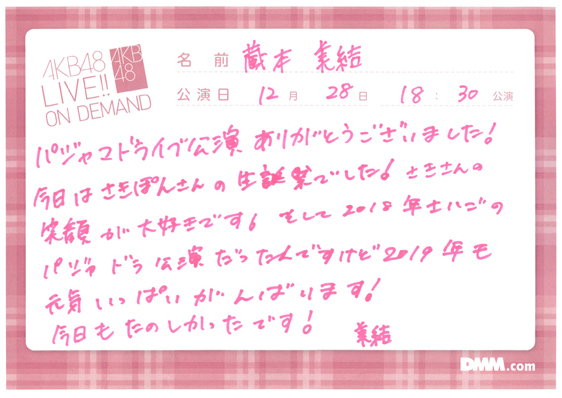 AKB48
LIVE!!
ON DEMAND
AKB
48
名前 蔵本 美結
公演日 12月 28日 18:30公演
パジャマドライブ公演 ありがとうございました!
今日はさきぽんさんの生誕祭でした! さきさんの
笑顔が大好きです! そして2018年さいごの
パジャドラ公演だったんですけど2019年も
元気いっぱいがんばります!
今日もたのしかったです!
美結
DMM.com